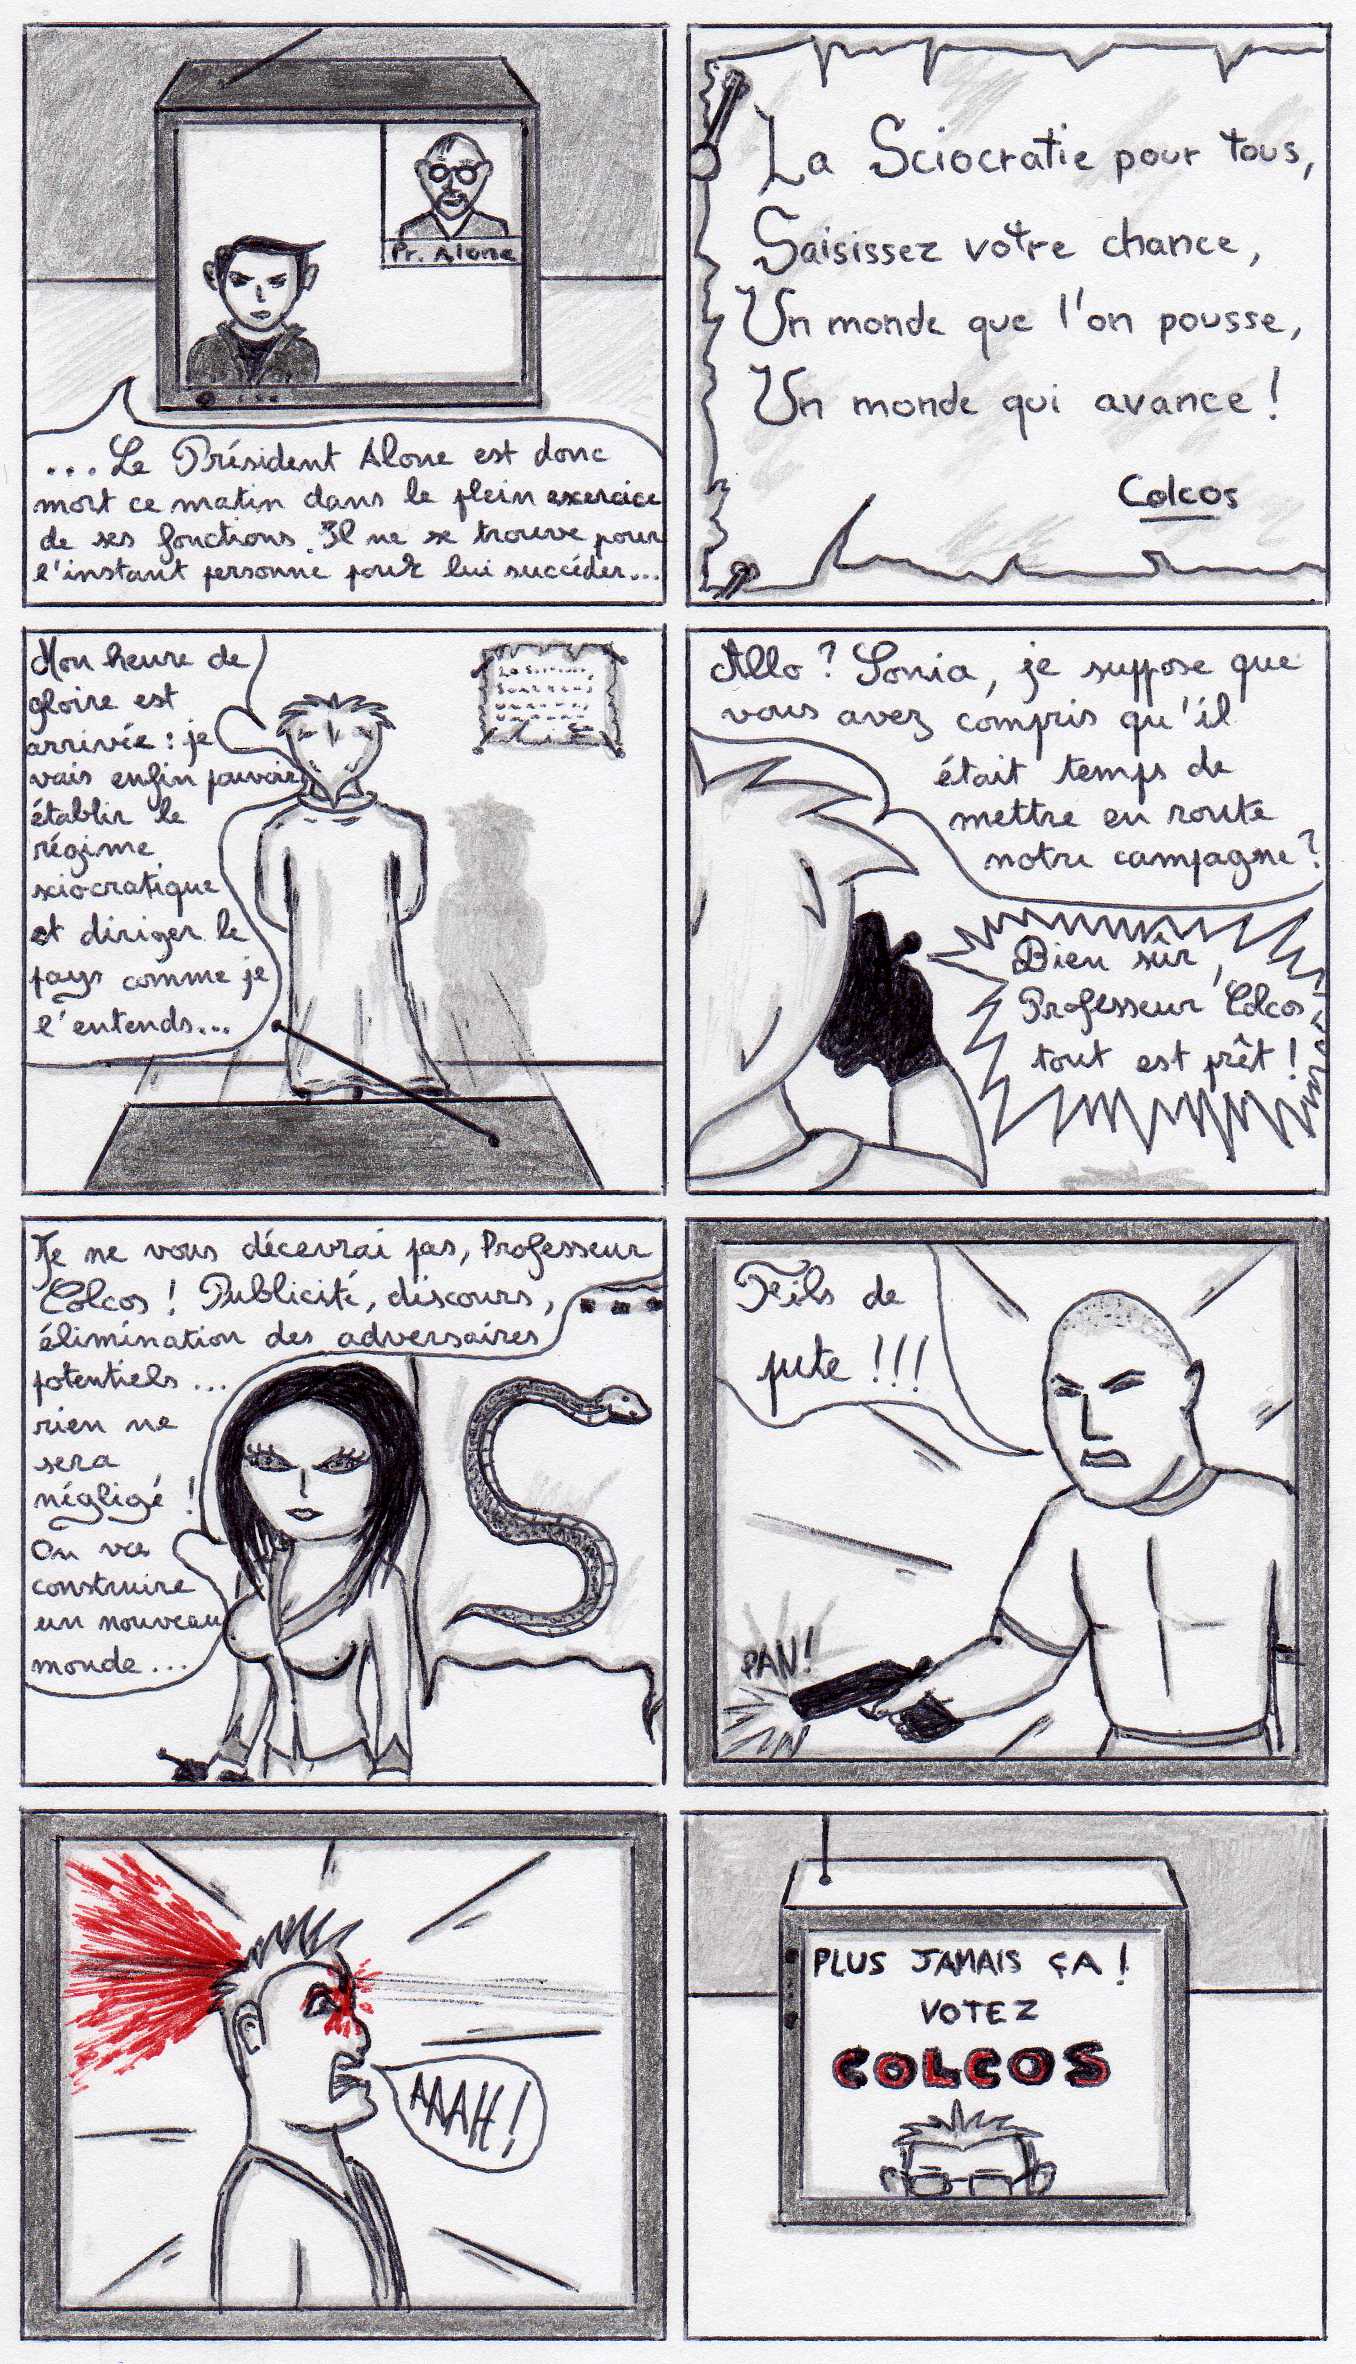 Pr. Alone
...Le Président Alone est donc
mort ce matin dans le plein exercice
de ses fonctions. Il ne se trouve pour
l'instant personne pour lui succéder...
La Sciocratie pour tous,
Saisissez votre chance,
Un monde que l'on pousse,
Un monde qui avance !
Colcos
Mon heure de
gloire est
arrivée : je
vais enfin pouvoir
établir le
régime
sciocratique
et diriger le
pays comme je
l'entends...
Allo ? Sonia, je suppose que
vous avez compris qu'il
était temps de
mettre en route
notre campagne ?
Bien sûr,
Professeur Colcos,
tout est prêt !
Je ne vous décevrai pas, Professeur
Colcos ! Publicité, discours,
élimination des adversaires
potentiels...
rien ne
sera
négligé !
On va
construire
un nouveau
monde...
Fils de
pute !!!
PAN!
AAAH!
PLUS JAMAIS ÇA !
VOTEZ
COLCOS